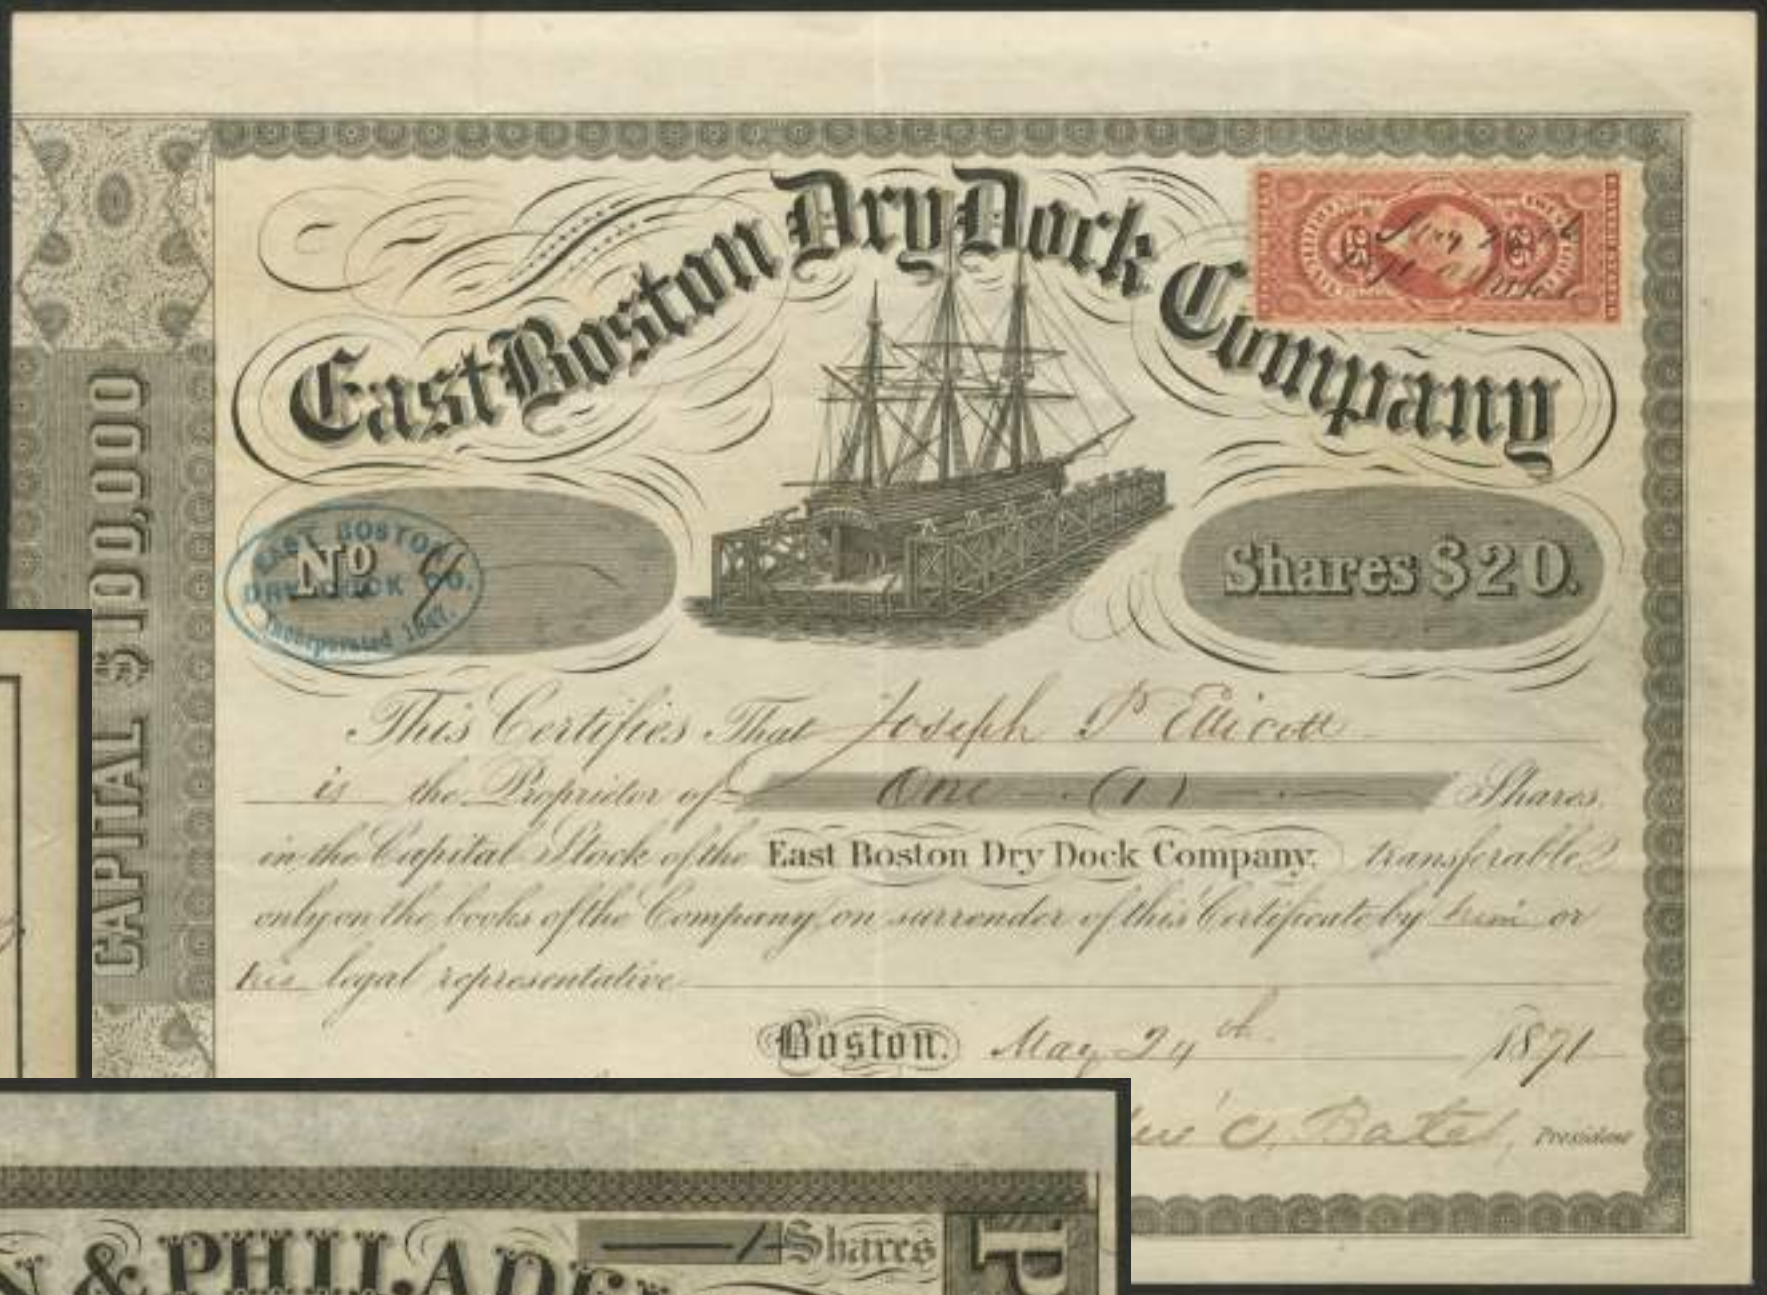 East Boston Dry Dock Company
CAPITAL $100,000
No 9
EAST BOSTON
DRY DOCK CO.
Incorporated 1847.
Shares $20.
This Certifies That Joseph P Ellicott
is the Proprietor of One (1) Shares
in the Capital Stock of the East Boston Dry Dock Company, transferable
only on the books of the Company, on surrender of this Certificate by him or
his legal representative
Boston. May 24th 1871
C. Bates, President
1 Shares
N & PHILADE
P